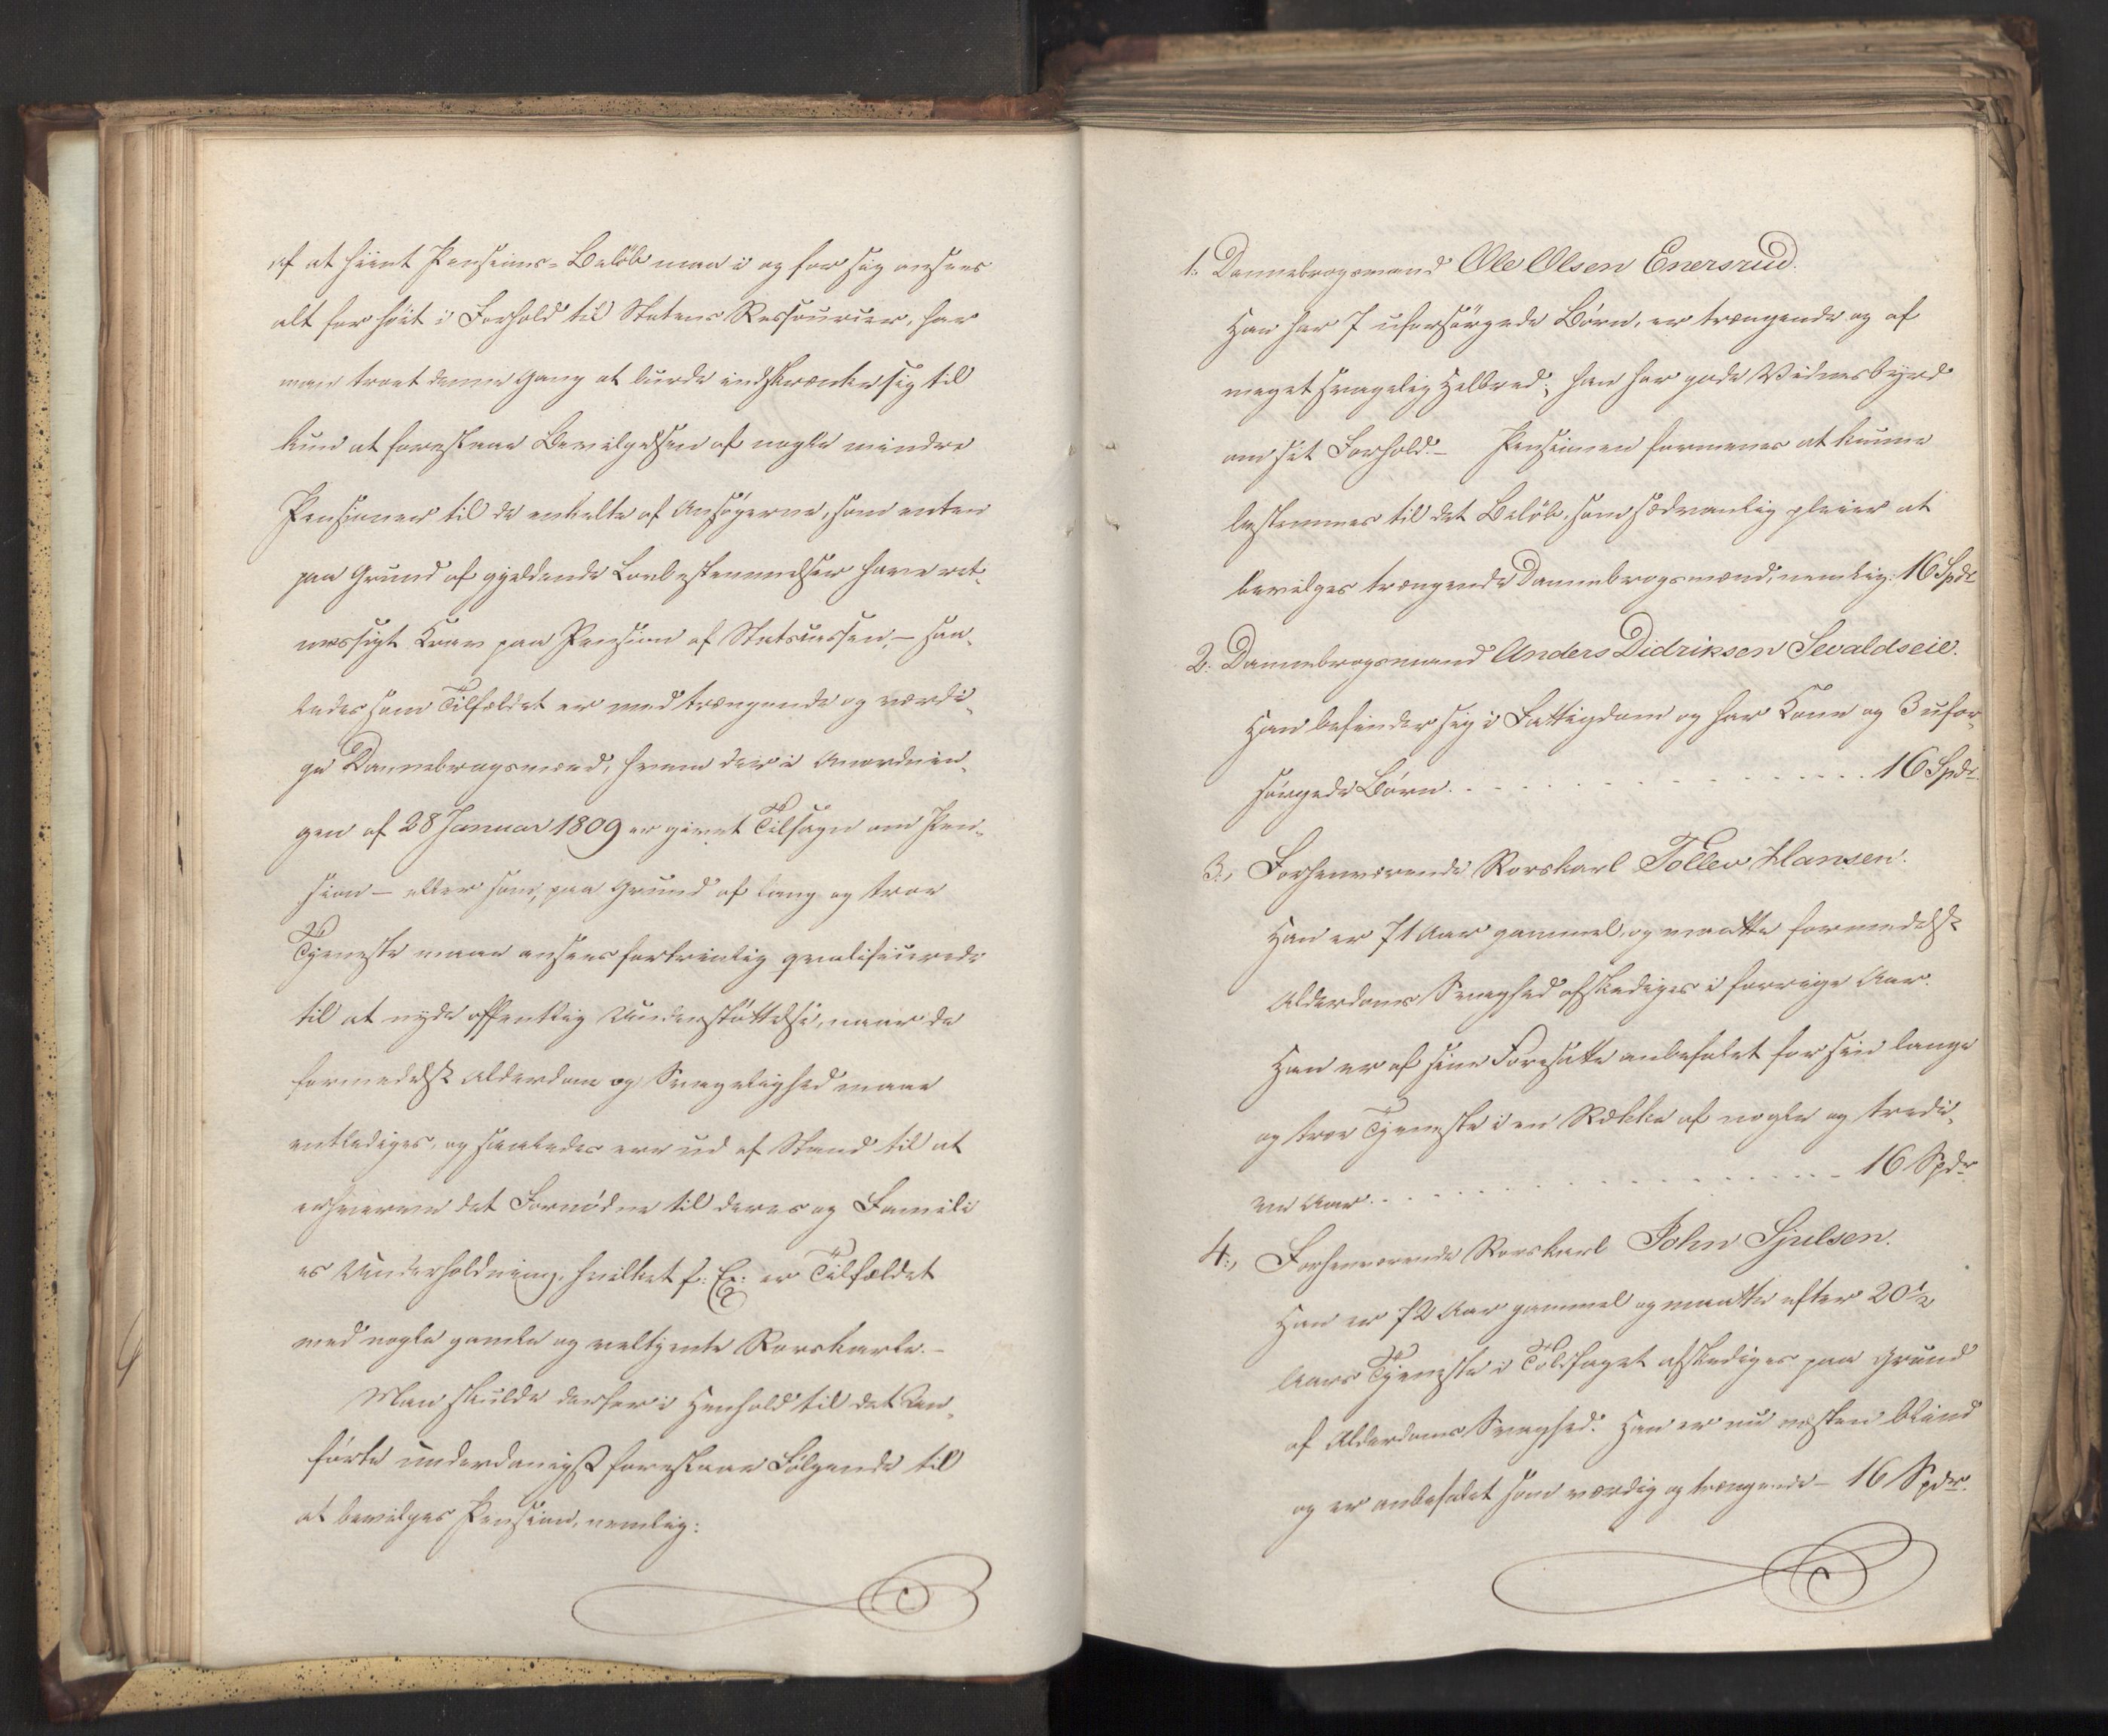 af at hiint Pensions-Beløb maa i og for sig ansees
alt for høit i Forhold til Statens Ressourcer, har
man troet denne Gang at burde indskrænke sig til
kun at foreslaae Bevilgelsen af nogle mindre
Pensioner til de enkelte af Ansøgerne, som enten
paa Grund af gjeldende Lovbestemmelser have ret-
mæssigt Krav paa Pension af Statscassen, – saa-
ledes som Tilfældet er med trængende og værdi-
ge Dannebrogsmænd, hvem der i Anordnin-
gen af 28 Januar 1809 er givet Tilsagn om Pen-
sion – eller som, paa Grund af lang og troe
Tjeneste maae ansees fortrinlig qvalificerede
til at nyde offentlig Understøttelse, naar de
formedelst Alderdom og Svagelighed maae
entlediges, og saaledes ere ud af Stand til at
erhverve det Fornødne til deres og Famili
es Underholdning, hvilket f: Ex: er Tilfældet
med nogle gamle og veltjente Rorskarle. –
Man skulde derfor i Henhold til det An-
førte underdanigst foreslaae Følgende til
at bevilges Pension, nemlig:
1. Dannebrogsmand Ole Olsen Enersrud.
Han har 7 uforsørgede Børn, er trængende og af
meget svagelig Helbred; han har gode Vidnesbyrd
om sit Forhold. – Pensionen formenes at kunne
bestemmes til det Beløb, som sædvanlig pleier at
bevilges trængende Dannebrogsmænd, nemlig: 16 Spdr
2. Dannebrogsmand Anders Didriksen Sevaldseie.
Han befinder sig i Fattigdom og har Kone og 3 ufor-
sørgede Børn . . . 16 Spdr.
3., Forhenværende Rorskarl Tollev Hansen.
Han er 71 Aar gammel, og maatte formedelst
Alderdoms Svaghed afskediges i forrige Aar.
Han er af sine Foresatte anbefalet for sin lange
og troe Tjeneste i en Række af nogle og tredi-
ve Aar . . . 16 Spdr
4., Forhenværende Rorskarl John Sjulsen.
Han er 72 Aar gammel og maatte efter 20 1/2
Aars Tjeneste i Toldfaget afskediges paa Grund
af Alderdoms Svaghed. Han er nu næsten blind
og er anbefalet som værdig og trængende – 16 Spdr.